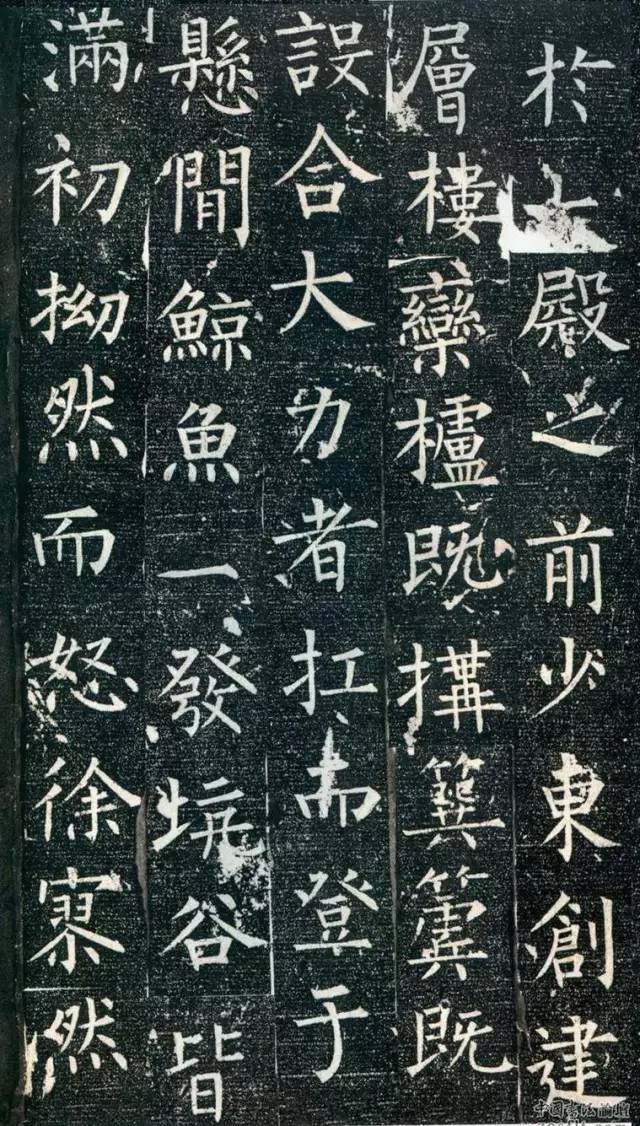 於大殿之前少東創建
層樓欒櫨既搆簨簴既
設合大力者扛而登于
懸閒鯨魚一發坑谷皆
滿初拗然而怒徐寮然
中国书法论坛